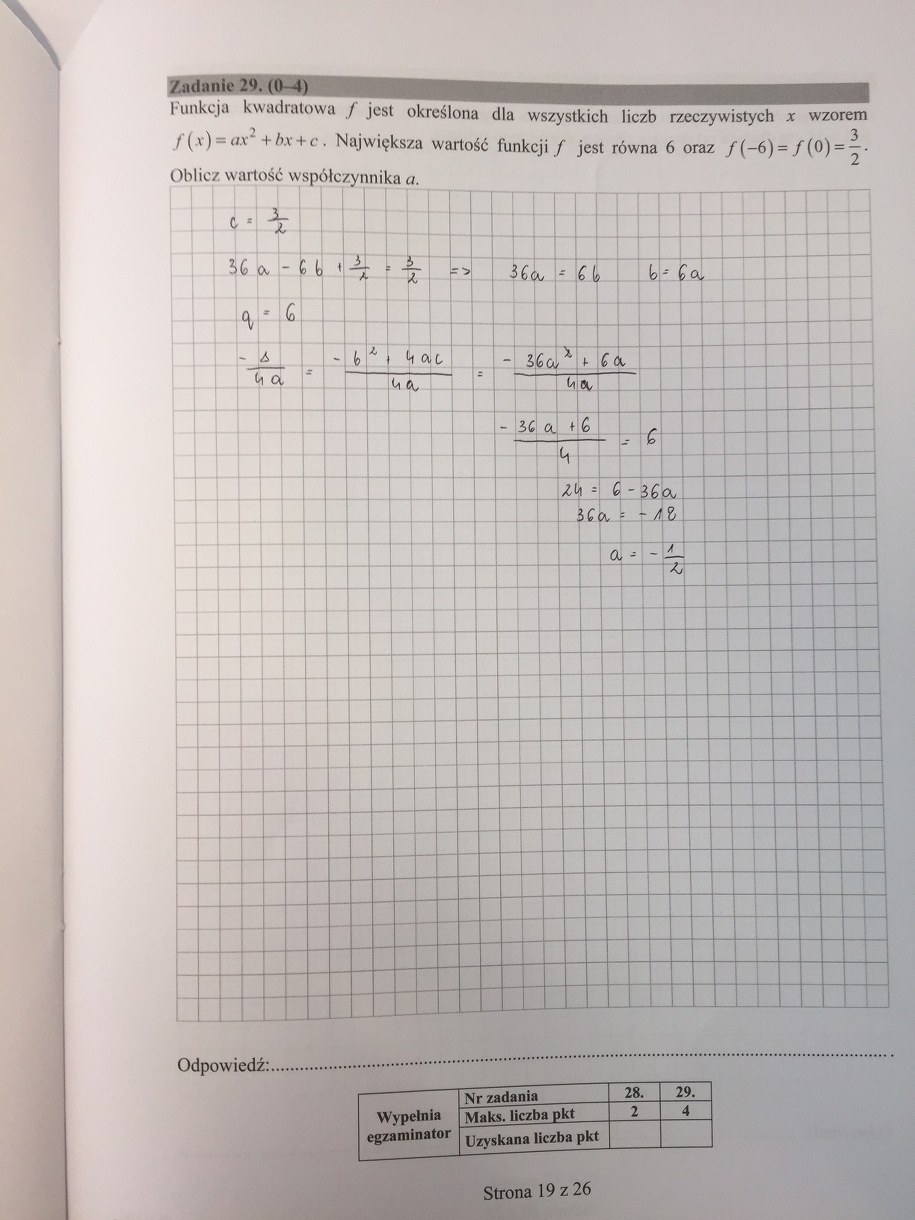 Zadanie 29. (0–4)
Funkcja kwadratowa f jest określona dla wszystkich liczb rzeczywistych x wzorem
f(x) = ax² + bx + c . Największa wartość funkcji f jest równa 6 oraz f(−6) = f(0) = 3/2 .
Oblicz wartość współczynnika a.
c = 3/2
36a − 6b + 3/2 = 3/2 => 36a = 6b b = 6a
q = 6
−Δ/4a = −b² + 4ac/4a = −36a² + 6a/4a
−36a + 6/4 = 6
24 = 6 − 36a
36a = −18
a = −1/2
Odpowiedź:
Wypełnia egzaminator
Nr zadania 28. 29.
Maks. liczba pkt 2 4
Uzyskana liczba pkt
Strona 19 z 26